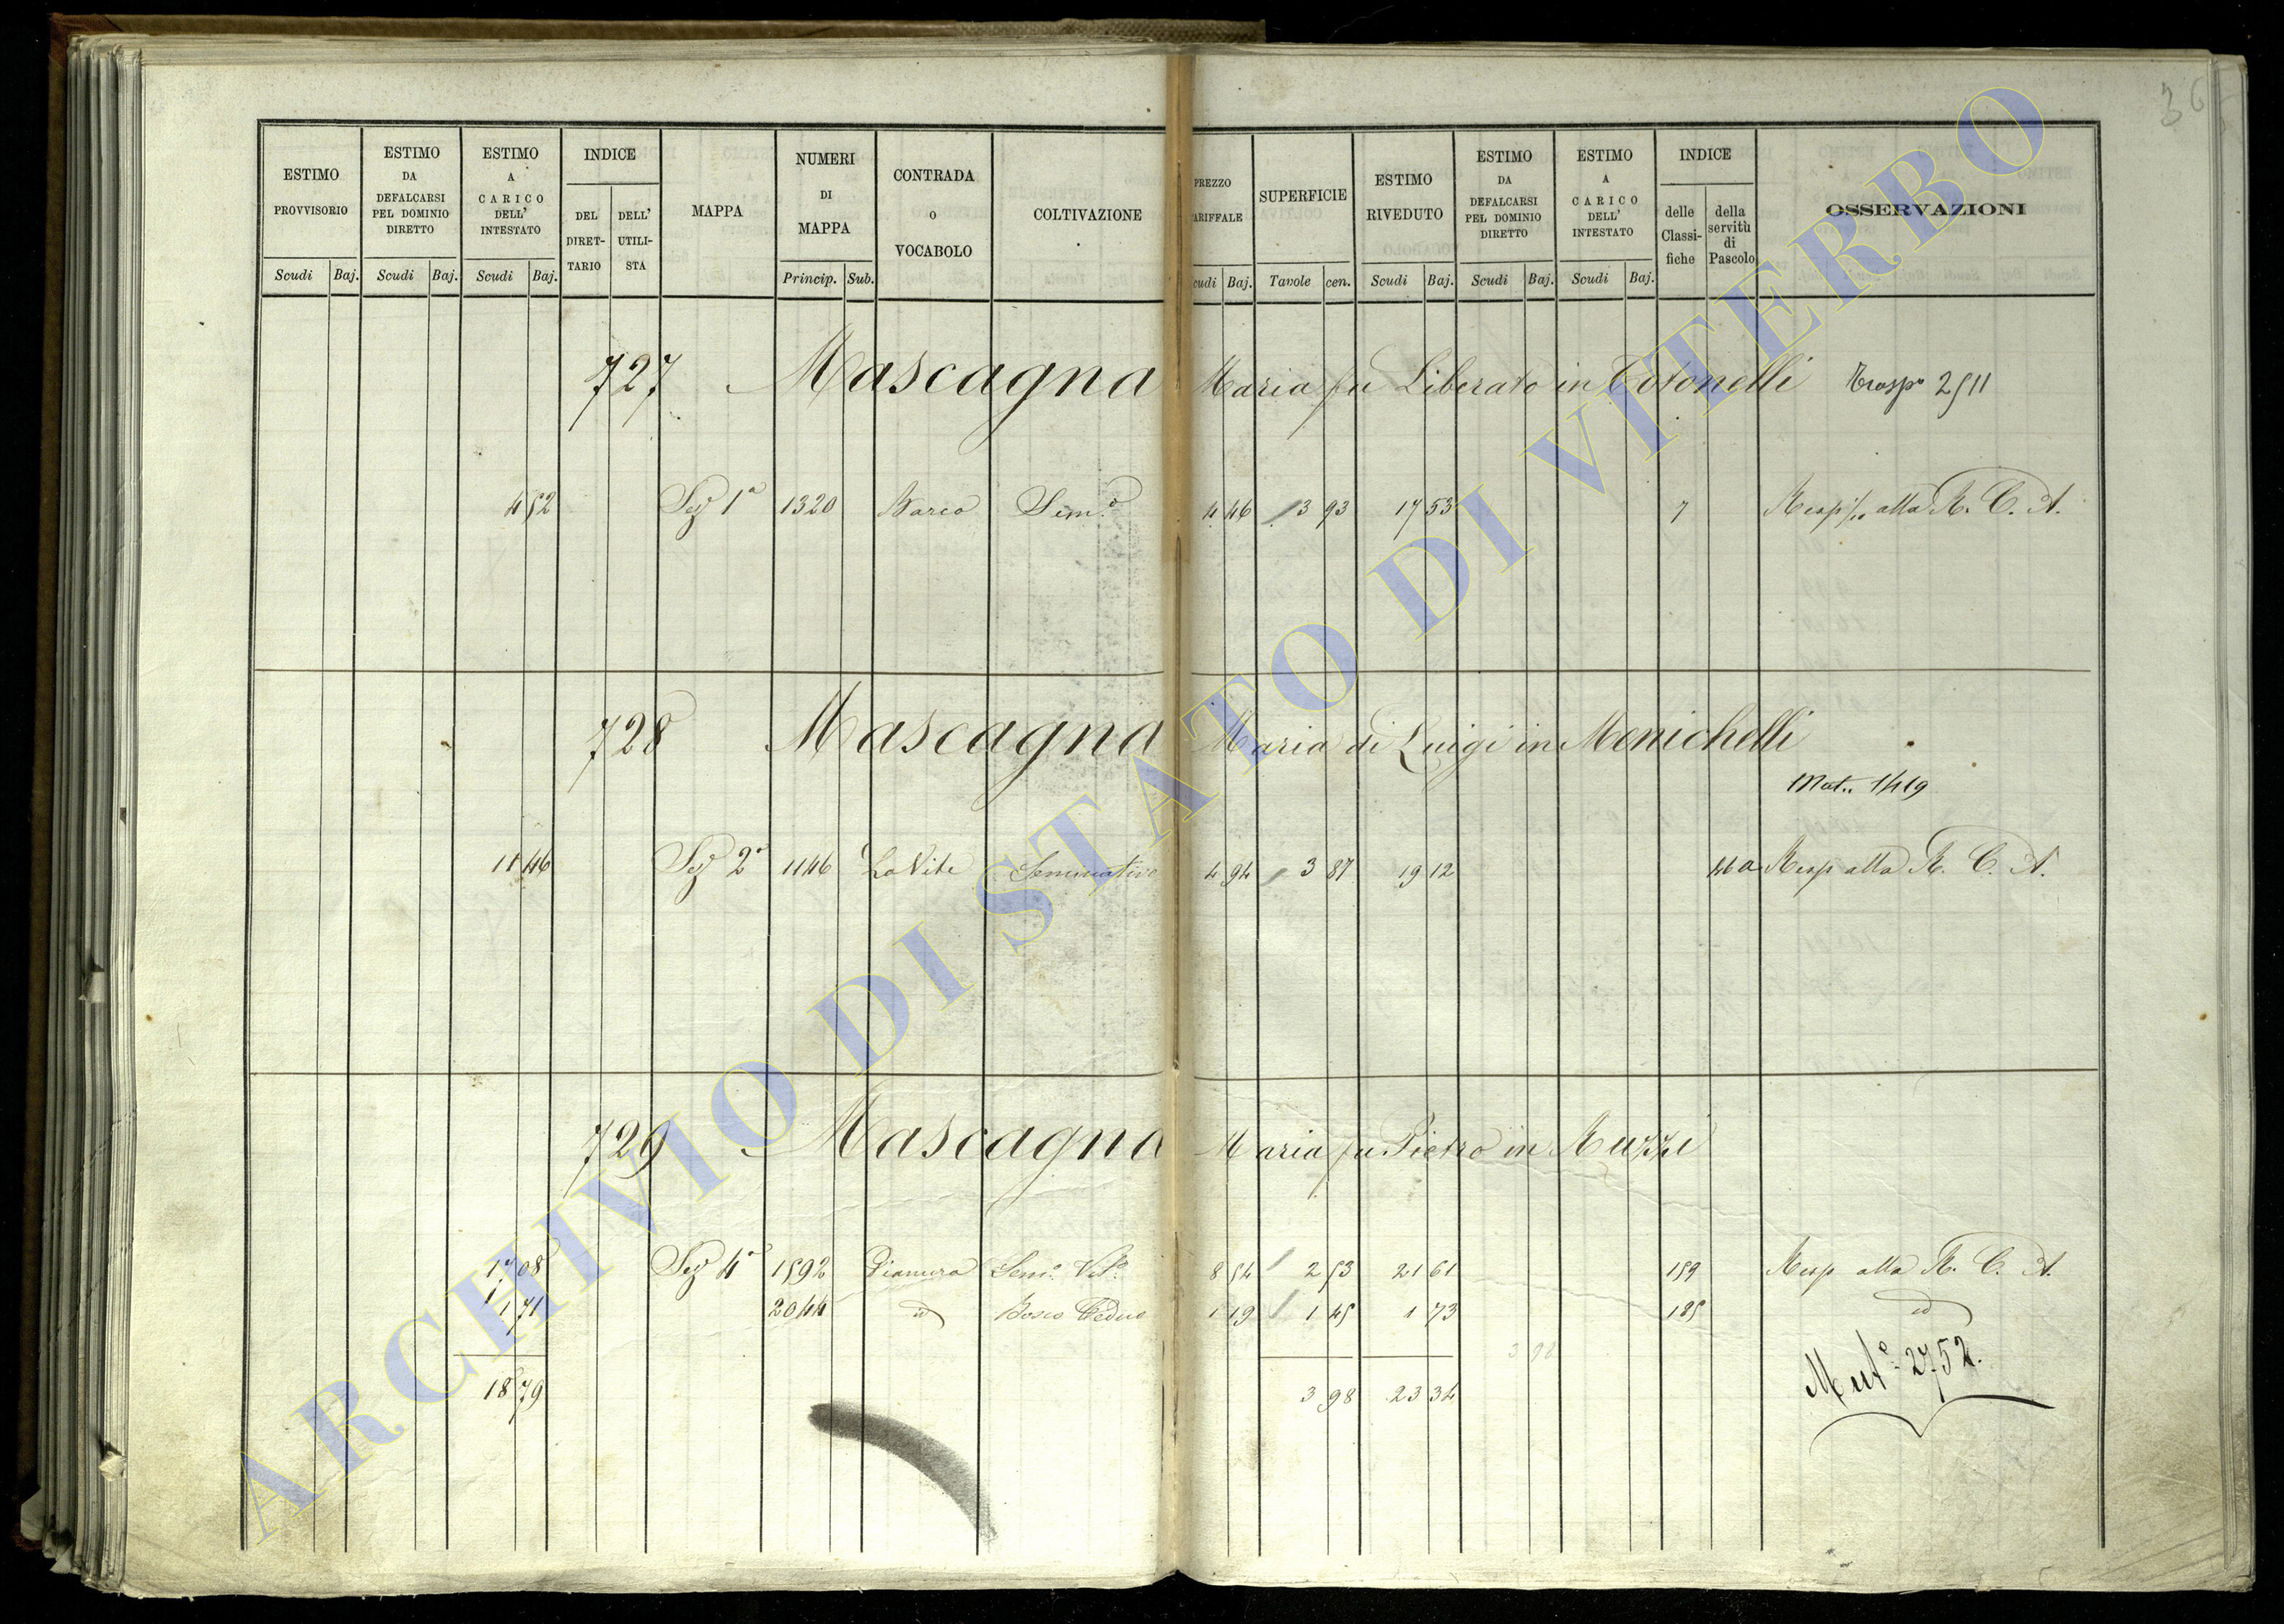 36
ESTIMO PROVVISORIO Scudi Baj.
ESTIMO DA DEFALCARSI PEL DOMINIO DIRETTO Scudi Baj.
ESTIMO A CARICO DELL' INTESTATO Scudi Baj.
INDICE DEL DIRETTARIO DELL' UTILISTA
MAPPA
NUMERI DI MAPPA Princip. Sub.
CONTRADA O VOCABOLO
COLTIVAZIONE
PREZZO TARIFFALE Scudi Baj.
SUPERFICIE Tavole cen.
ESTIMO RIVEDUTO Scudi Baj.
ESTIMO DA DEFALCARSI PEL DOMINIO DIRETTO Scudi Baj.
ESTIMO A CARICO DELL' INTESTATO Scudi Baj.
INDICE delle Classifiche della servitù di Pascolo
OSSERVAZIONI
727 Mascagna Maria fu Liberato in Totonelli Trasp° 2511
4 52 Sez 1ª 1320 Barco Sem.° 4 46 3 93 17 53 7 Risp. alla R. C. A.
728 Mascagna Maria di Luigi in Menichelli
Mut.. 1419
11 46 Sez 2ª 1146 La Vite Seminativo 4 94 3 87 19 12 46 a Risp alla R. C. A.
729 Mascagna Maria fu Pietro in Muzzi
17 08 Sez 4ª 1592 Pianura Sem.° Vit.° 8 54 2 53 21 61 159 Risp alla R. C. A.
1 71 2044 id Bosco Ceduo 1 19 1 45 1 73 185 id
3 98
Mut.ᵉ 2752.
18 79 3 98 23 34
ARCHIVIO DI STATO DI VITERBO